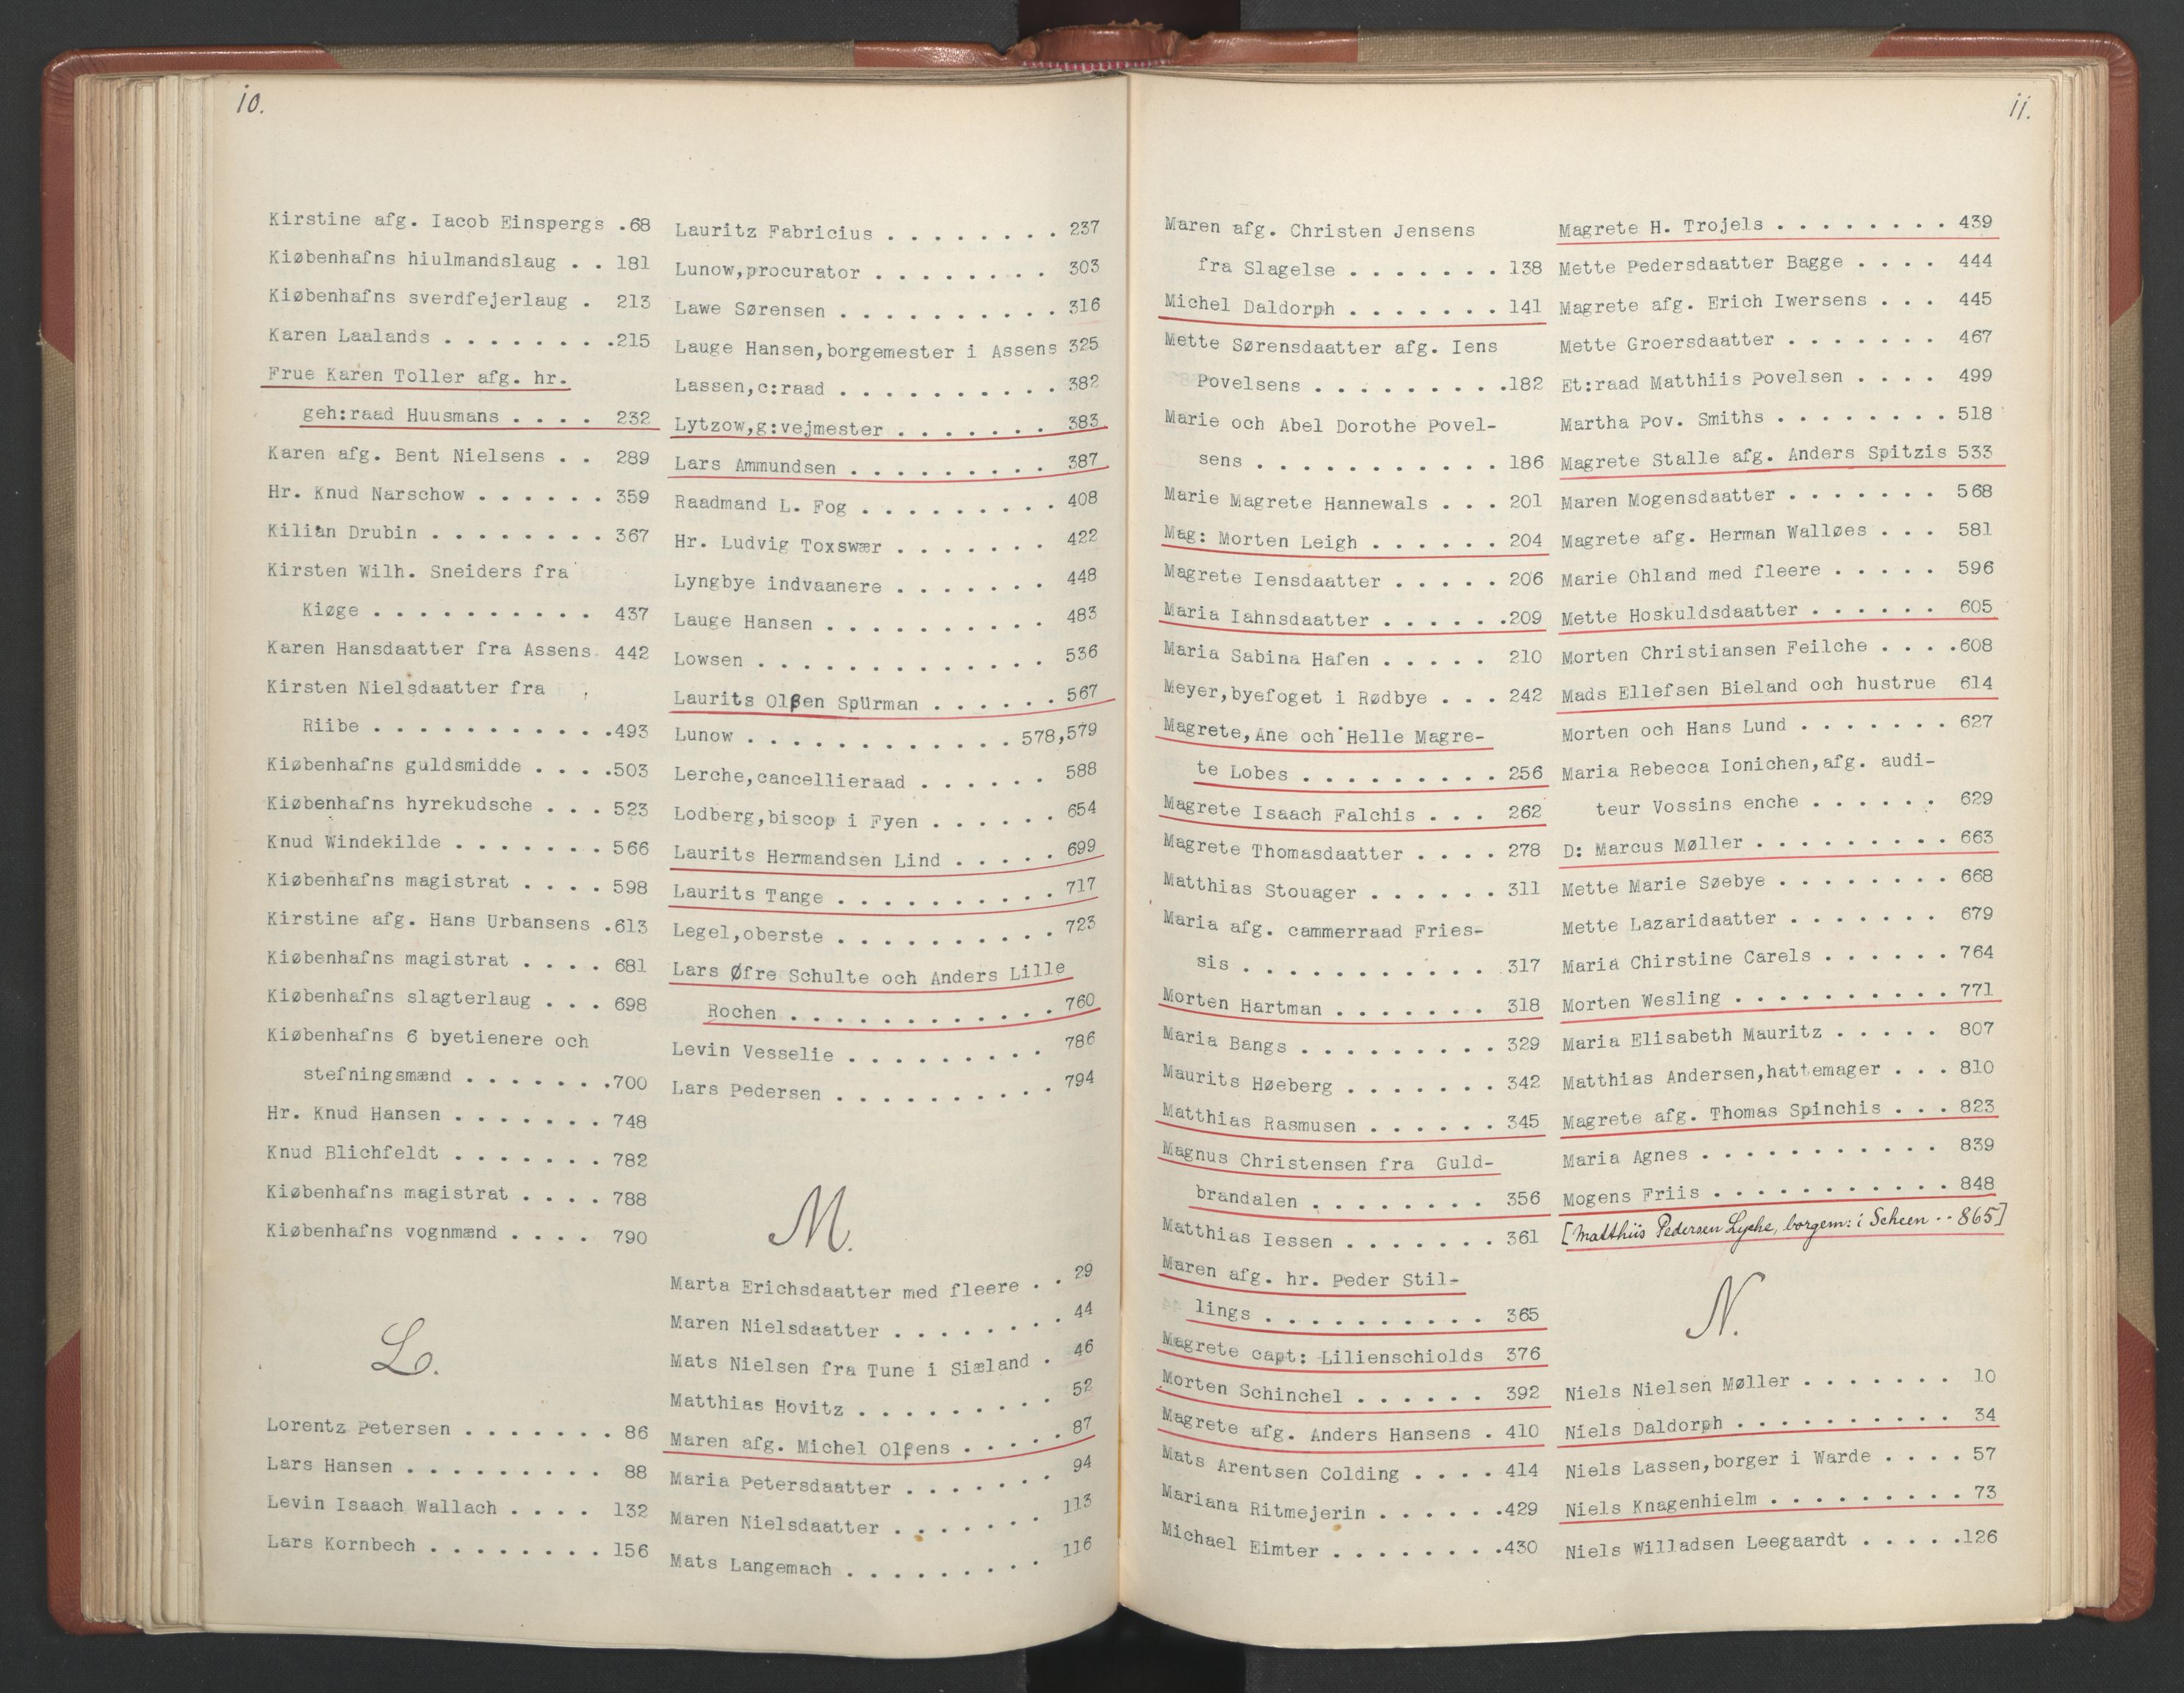 10.
Kirstine afg. Iacob Einspergs .68
Kiøbenhafns hiulmandslaug . . 181
Kiøbenhafns sverdfejerlaug . 213
Karen Laalands . . . . . . . .215
Frue Karen Toller afg. hr.
geh:raad Huusmans . . . . 232
Karen afg. Bent Nielsens . . 289
Hr. Knud Narschow . . . . . . 359
Kilian Drubin . . . . . . . . 367
Kirsten Wilh. Sneiders fra
Kiøge . . . . . . . . . . 437
Karen Hansdaatter fra Assens 442
Kirsten Nielsdaatter fra
Riibe . . . . . . . . . . .493
Kiøbenhafns guldsmidde . . . .503
Kiøbenhafns hyrekudsche . . . 523
Knud Windekilde . . . . . . . 566
Kiøbenhafns magistrat . . . . 598
Kirstine afg. Hans Urbansens .613
Kiøbenhafns magistrat . . . . 681
Kiøbenhafns slagterlaug . . . 698
Kiøbenhafns 6 byetienere och
stefningsmænd . . . . . . .700
Hr. Knud Hansen . . . . . . . 748
Knud Blichfeldt . . . . . . . 782
Kiøbenhafns magistrat . . . . 788
Kiøbenhafns vognmænd . . . . 790
L.
Lorentz Petersen . . . . . . . 86
Lars Hansen . . . . . . . . . 88
Levin Isaach Wallach . . . . 132
Lars Kornbech . . . . . . . . 156
Lauritz Fabricius . . . . . . . . 237
Lunow,procurator . . . . . . . . 303
Lawe Sørensen . . . . . . . . . . 316
Lauge Hansen,borgemester i Assens 325
Lassen,c:raad . . . . . . . . . . 382
Lytzow,g:vejmester . . . . . . . 383.
Lars Ammundsen . . . . . . . . . 387
Raadmand L. Fog . . . . . . . . . 408
Hr. Ludvig Toxswær . . . . . . . 422
Lyngbye indvaanere . . . . . . . 448
Lauge Hansen . . . . . . . . . . 483
Lowsen . . . . . . . . . . . . . 536
Laurits Olßen Spürman . . . . . . 567
Lunow . . . . . . . . . . . . 578,579
Lerche,cancellieraad . . . . . . 588
Lodberg,biscop i Fyen . . . . . . 654
Laurits Hermandsen Lind . . . . . 699
Laurits Tange . . . . . . . . . . 717
Legel,oberste . . . . . . . . . . 723
Lars Øfre Schulte och Anders Lille
Rochen . . . . . . . . . . . . 760
Levin Vesselie . . . . . . . . . 786
Lars Pedersen . . . . . . . . . . 794
M.
Marta Erichsdaatter med fleere . . 29
Maren Nielsdaatter . . . . . . . . 44
Mats Nielsen fra Tune i Siæland . 46
Matthias Hovitz . . . . . . . . . 52
Maren afg. Michel Olßens . . . . . 87
Maria Petersdaatter . . . . . . . 94
Maren Nielsdaatter . . . . . . . 113
Mats Langemach . . . . . . . . . 116
11.
Maren afg. Christen Jensens
fra Slagelse . . . . . . . 138
Michel Daldorph . . . . . . . 141
Mette Sørensdaatter afg. Iens
Povelsens . . . . . . . . .182
Marie och Abel Dorothe Povel-
sens . . . . . . . . . . . 186
Marie Magrete Hannewals . . . 201
Mag: Morten Leigh . . . . . . 204
Magrete Iensdaatter . . . . . 206
Maria Iahnsdaatter . . . . . .209
Maria Sabina Hafen . . . . . 210
Meyer,byefoget i Rødbye . . . 242
Magrete,Ane och Helle Magre-
te Lobes . . . . . . . . . 256
Magrete Isaach Falchis . . . 262
Magrete Thomasdaatter . . . . 278
Matthias Stouager . . . . . . 311
Maria afg. cammerraad Fries-
sis . . . . . . . . . . . 317
Morten Hartman . . . . . . . 318
Maria Bangs . . . . . . . . . 329
Maurits Høeberg . . . . . . . 342
Matthias Rasmusen . . . . . . 345
Magnus Christensen fra Guld-
brandalen . . . . . . . . 356
Matthias Iessen . . . . . . . 361
Maren afg. hr. Peder Stil-
lings . . . . . . . . . . 365
Magrete capt: Lilienschiolds 376
Morten Schinchel . . . . . . 392
Magrete afg. Anders Hansens . 410
Mats Arentsen Colding . . . . 414
Mariana Ritmejerin . . . . . .429
Michael Eimter . . . . . . . .430
Magrete H. Trojels . . . . . . . . 439
Mette Pedersdaatter Bagge . . . . 444
Magrete afg. Erich Iwersens . . . 445
Mette Groersdaatter . . . . . . . 467
Et:raad Matthiis Povelsen . . . . 499
Martha Pov. Smiths . . . . . . . . 518
Magrete Stalle afg. Anders Spitzis 533
Maren Mogensdaatter . . . . . . . 568
Magrete afg. Herman Walløes . . . 581
Marie Ohland med fleere . . . . . 596
Mette Hoskuldsdaatter . . . . . . 605
Morten Christiansen Feilche . . . .608
Mads Ellefsen Bieland och hustrue 614
Morten och Hans Lund . . . . . . . 627
Maria Rebecca Ionichen,afg. audi-
teur Vossins enche . . . . . . 629
D: Marcus Møller . . . . . . . . . 663
Mette Marie Søebye . . . . . . . . 668
Mette Lazaridaatter . . . . . . . 679
Maria Chirstine Carels . . . . . . 764
Morten Wesling . . . . . . . . . . 771
Maria Elisabeth Mauritz . . . . . 807
Matthias Andersen,hattemager . . . 810
Magrete afg. Thomas Spinchis . . . 823
Maria Agnes . . . . . . . . . . . 839
Mogens Friis . . . . . . . . . . . 848
[Matthiis Pedersen Lyche, borgem: i Scheen . . 865]
N.
Niels Nielsen Møller . . . . . . . 10
Niels Daldorph . . . . . . . . . . 34
Niels Lassen,borger i Warde . . . . 57
Niels Knagenhielm . . . . . . . . . 73
Niels Willadsen Leegaardt . . . . .126